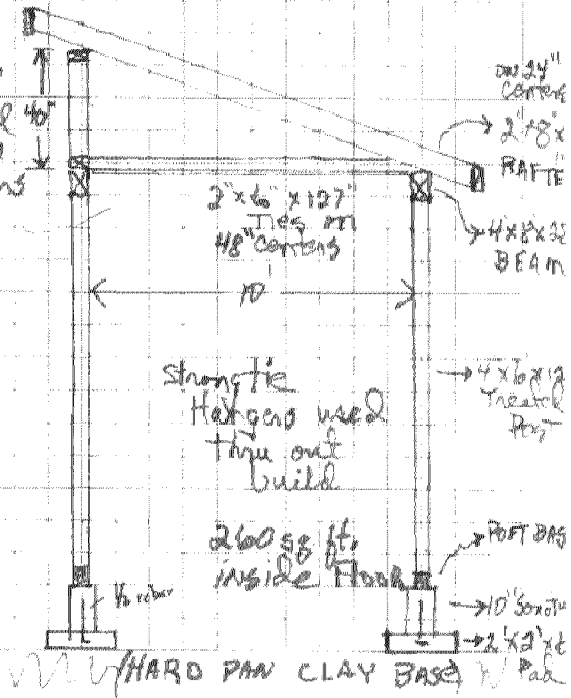 40"
on 24"
centers
2"x8"x
RAFTE
2"x6"x127"
Ties on
48" centers
4"x8"x32
BEAM
10'
StrongTie
Hangers used
thru out
build
4"x6"x12
Treated
Post
260 sq ft.
inside Floor
POST BAS
1/2 rebar
10" Sonotu
2'x2'x6
Pad
HARD PAN CLAY BASE